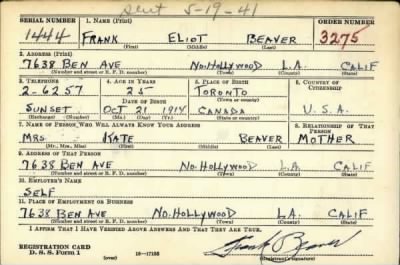 sent 5-19-41
SERIAL NUMBER 1. NAME (Print) ORDER NUMBER
1444 FRANK ELIOT BEAVER 3275
(First) (Middle) (Last)
2. ADDRESS (Print)
7638 BEN AVE NO. HOLLYWOOD L.A. CALIF
(Number and street or R. F. D. number) (Town) (County) (State)
3. TELEPHONE 4. AGE IN YEARS 5. PLACE OF BIRTH 6. COUNTRY OF CITIZENSHIP
2-6257 25 TORONTO
DATE OF BIRTH (Town or county)
SUNSET OCT 21 1914 CANADA U.S.A.
(Exchange) (Number) (Mo.) (Day) (Yr.) (State or country)
7. NAME OF PERSON WHO WILL ALWAYS KNOW YOUR ADDRESS 8. RELATIONSHIP OF THAT PERSON
MRS KATE BEAVER MOTHER
(Mr., Mrs., Miss) (First) (Middle) (Last)
9. ADDRESS OF THAT PERSON
7638 BEN AVE NO. HOLLYWOOD L.A. CALIF
(Number and street or R. F. D. number) (Town) (County) (State)
10. EMPLOYER'S NAME
SELF
11. PLACE OF EMPLOYMENT OR BUSINESS
7638 BEN AVE NO. HOLLYWOOD LA. CALIF
(Number and street or R. F. D. number) (Town) (County) (State)
I AFFIRM THAT I HAVE VERIFIED ABOVE ANSWERS AND THAT THEY ARE TRUE.
REGISTRATION CARD
D. S. S. Form 1 (over) 16-17105 Frank Beaver
(Registrant's signature)